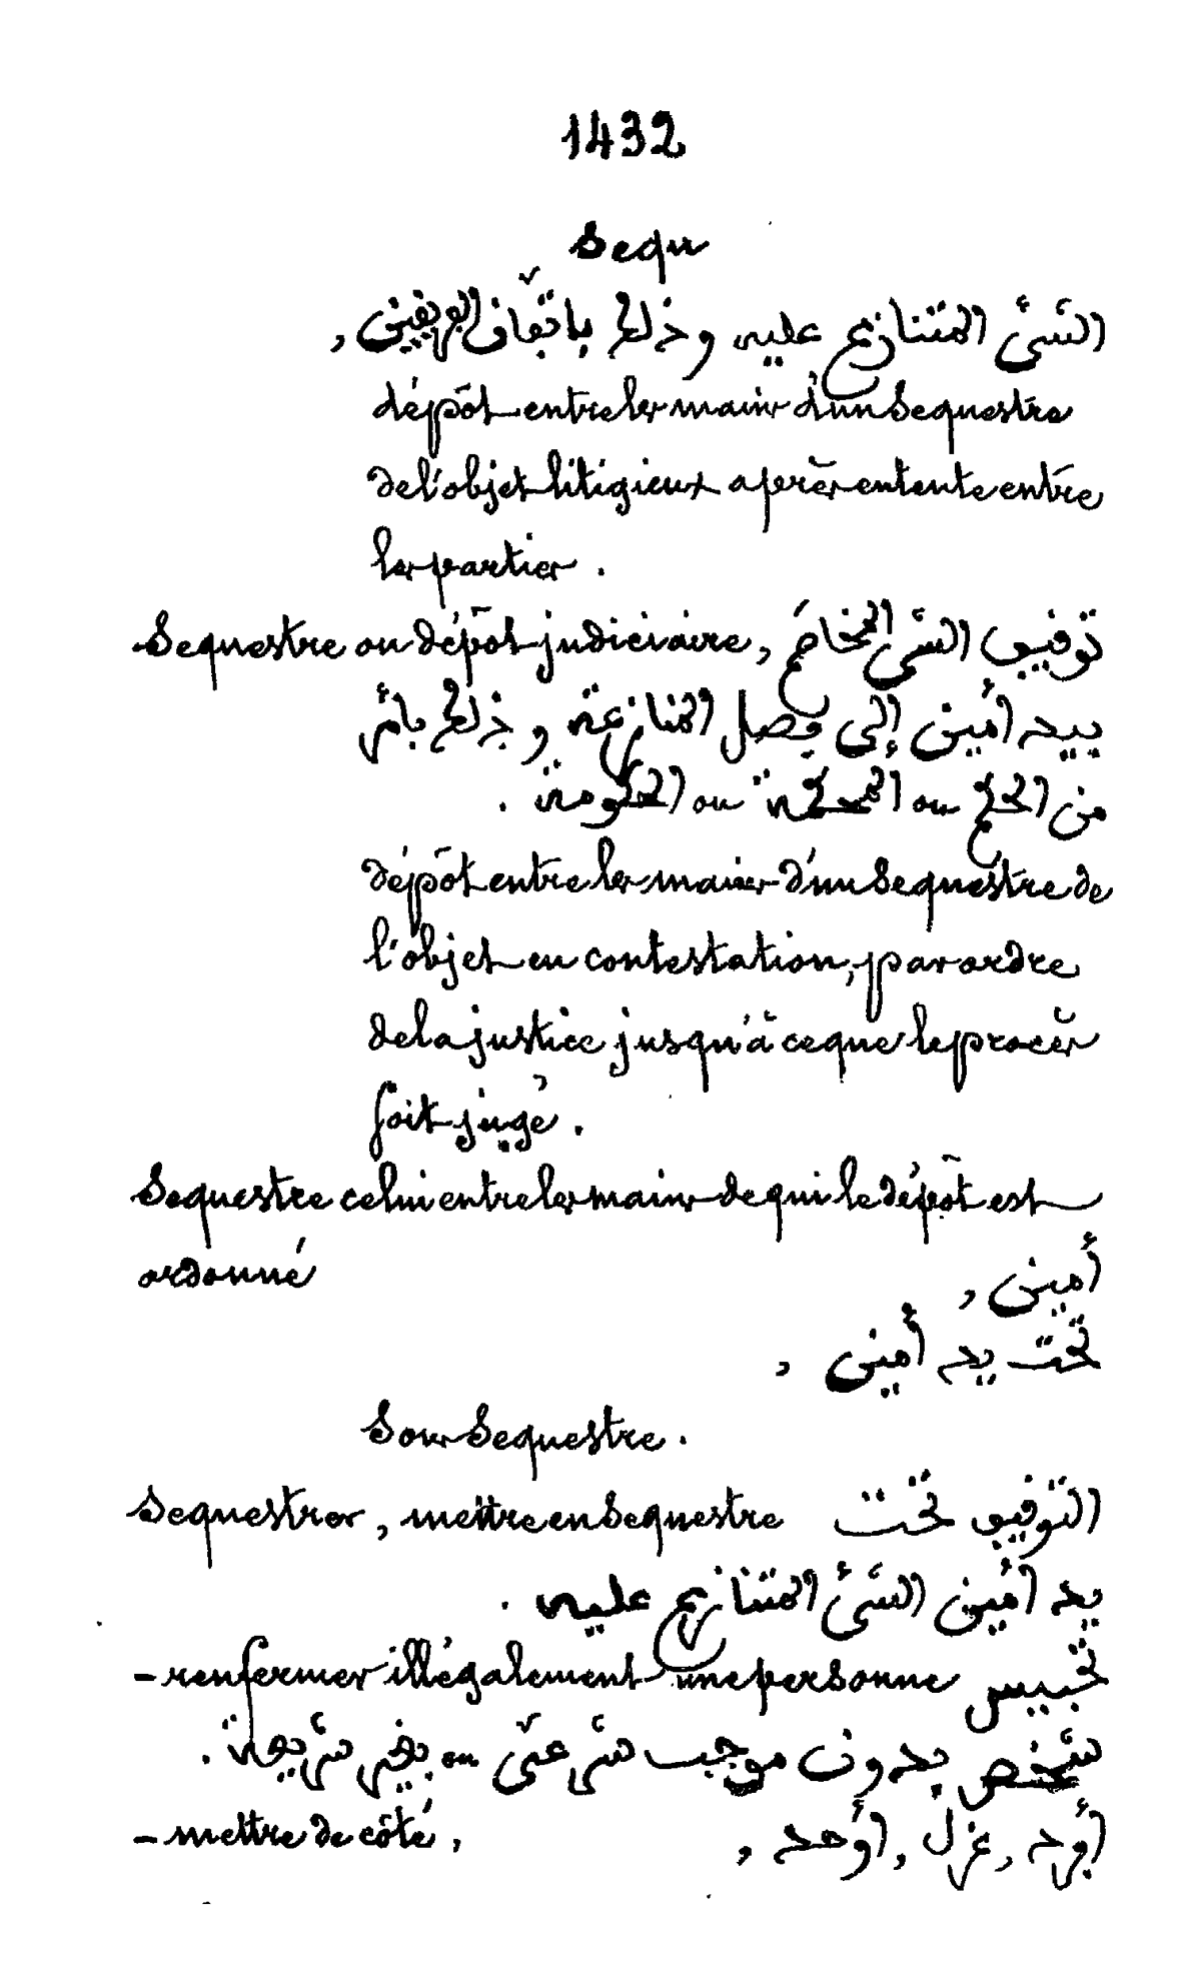 1432
Sequ
الشئ المتنازع عليه وذلك باتّفاق الفريقين ,
dépôt entre les mains d'un Sequestre
de l'objet litigieux après entente entre
les parties .
Sequestre ou dépôt judiciaire , توقيف الشئ المخاصم
بيد أمين إلى فصل المنازعة و ذلك بأمر
من الحكم ou المحكمة ou الحكومة .
dépôt entre les mains d'un Sequestre de
l'objet en contestation, par ordre
de la justice jusqu'à ce que le procès
soit jugé .
Sequestre celui entre les mains de qui le dépôt est
ordonné أمين ,
تحت يد أمين ,
Sous Sequestre .
Sequestrer , mettre en Sequestre التوقيف تحت
يد أمين الشئ المتنازع عليه .
- renfermer illégalement une personne تحبيس
شخص بدون موجب شرعىّ ou بغير شريعة .
- mettre de côté , أفرد , عزل , أوحد ,